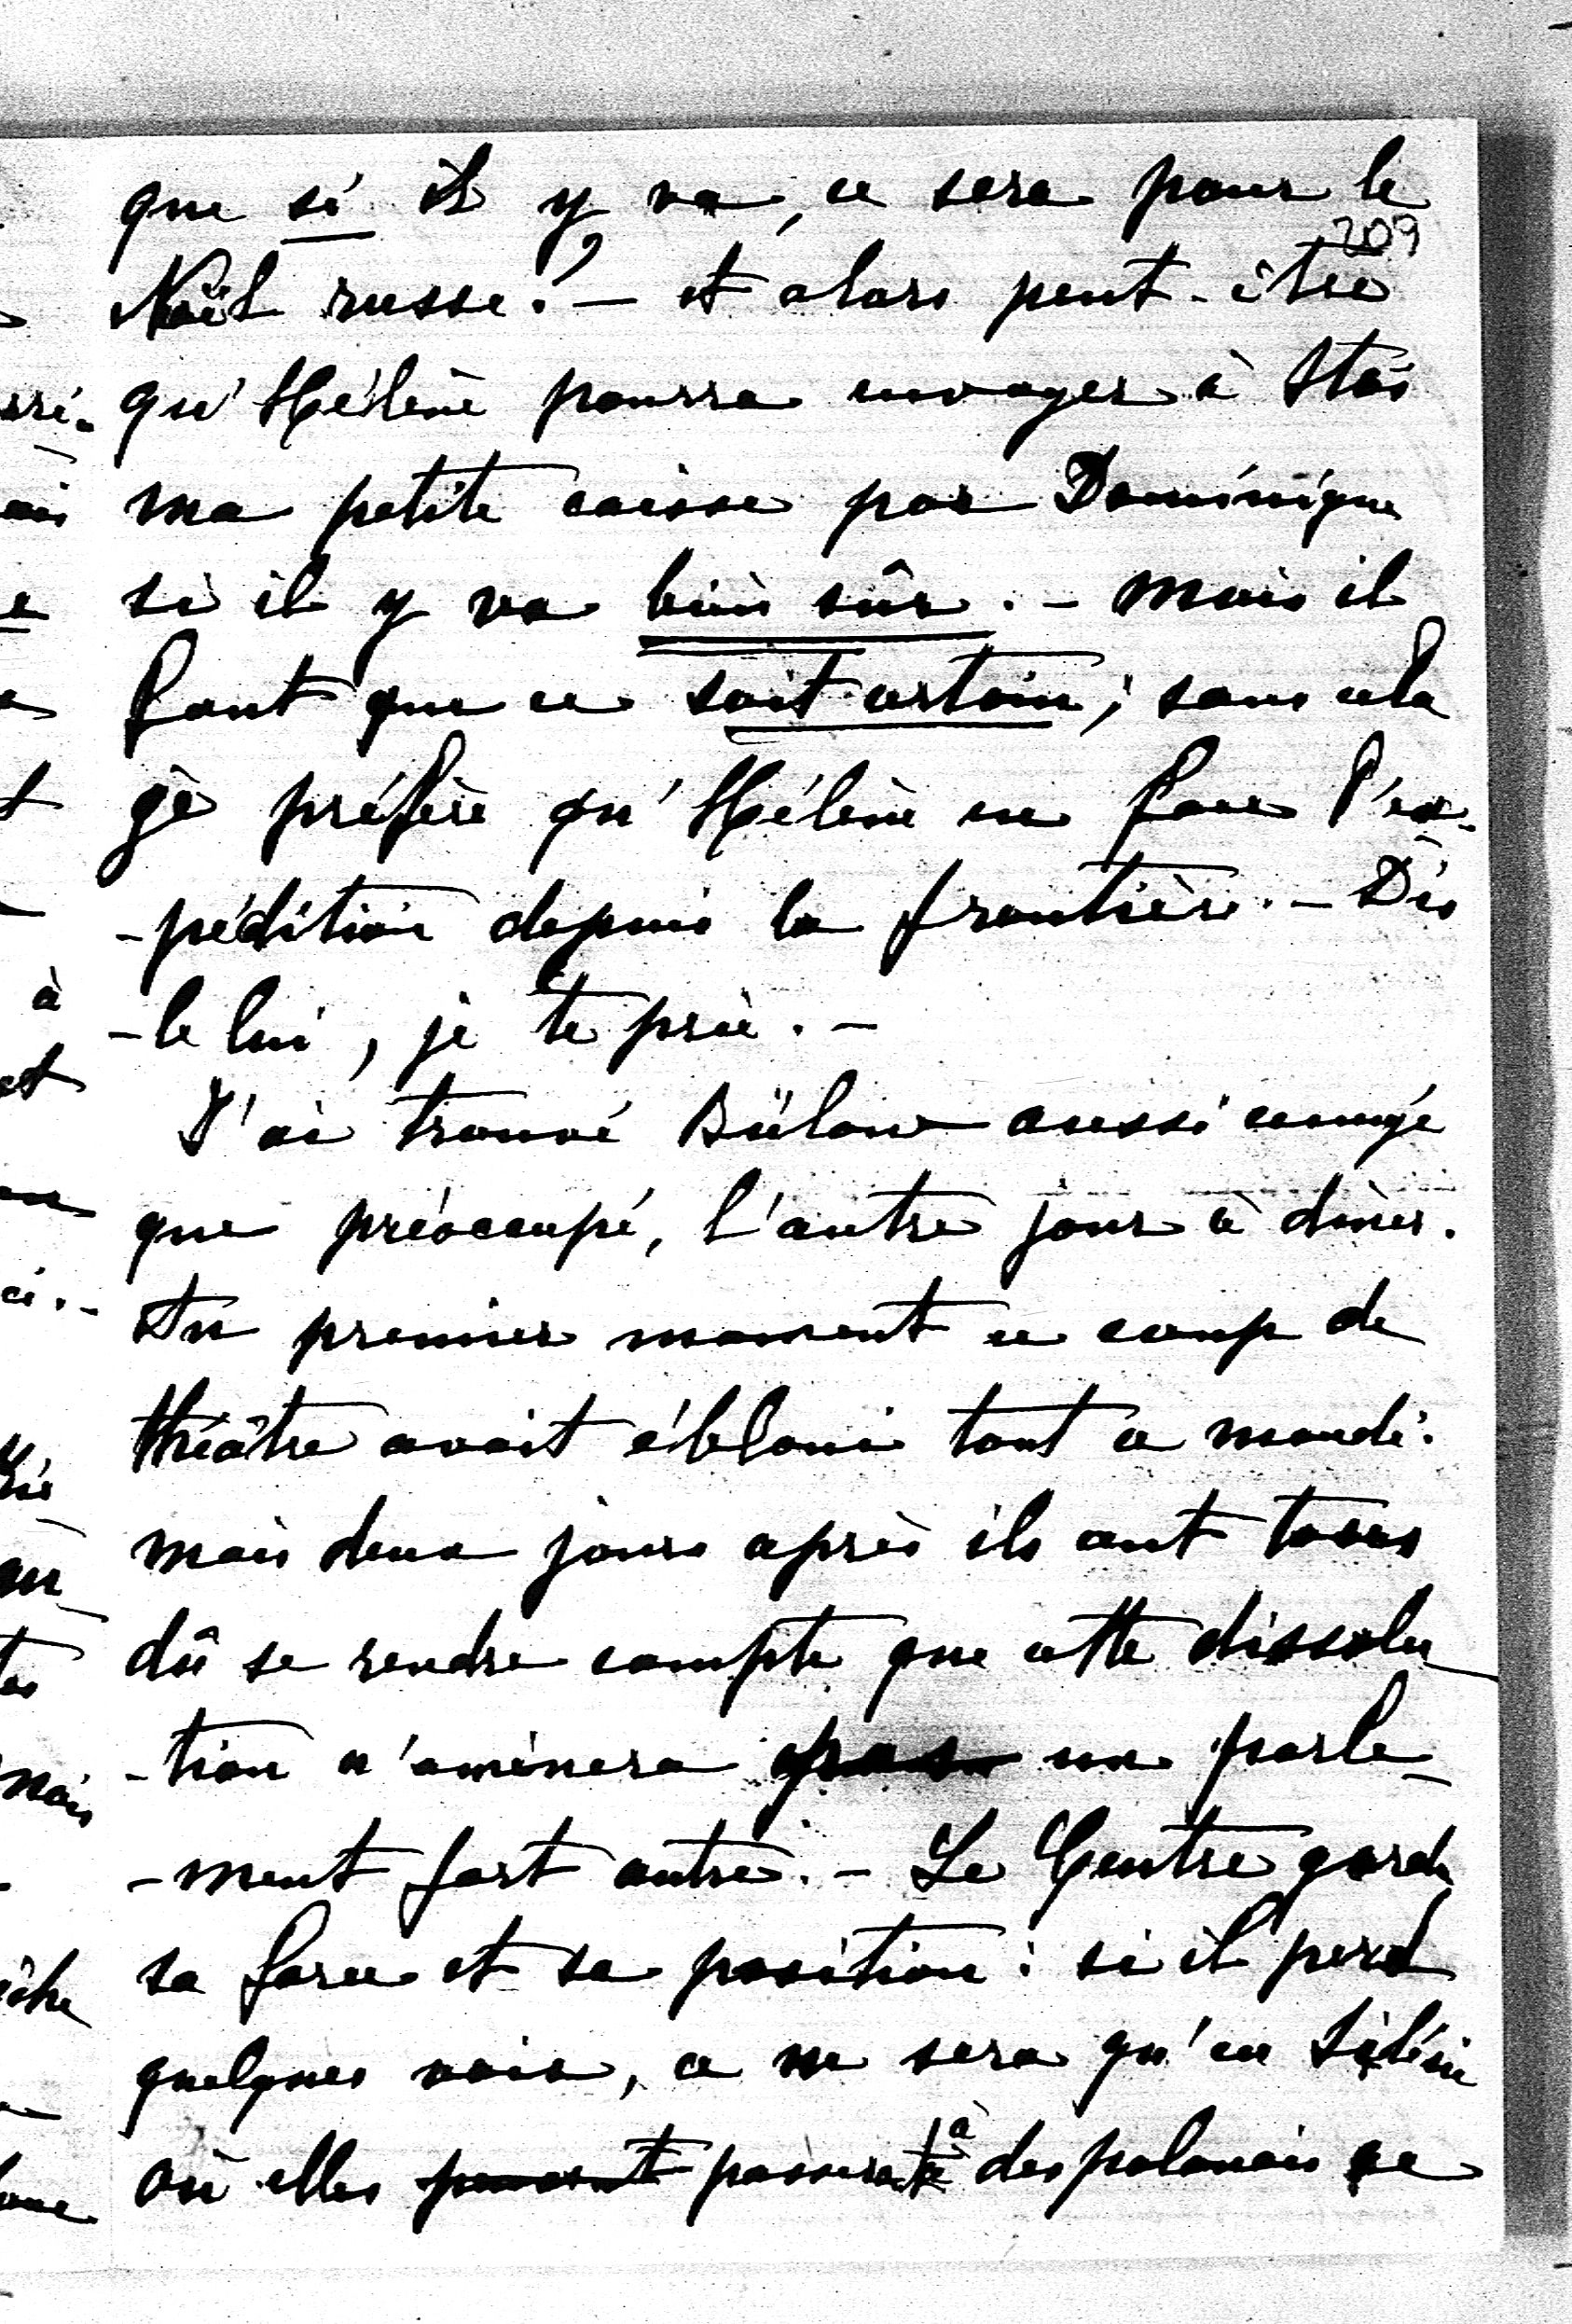 que si il y va, ce sera pour le
209
Noël russe? — et alors peut-être
qu'Hélène pourra envoyer à Stas
ma petite caisse par Dominique
si il y va bien sûr. — Mais il
faut que ce soit certain; sans cela
je préfère qu'Hélène en fasse l'ex-
-pédition depuis la frontière. — Dis
-le lui, je te prie. —
J'ai trouvé Bülow aussi ennuyé
que préoccupé, l'autre jour à dîner.
Au premier moment ce coup de
théâtre avait ébloui tout ce monde.
mais deux jours après ils ont tous
dû se rendre compte que cette dissolu
-tion n'amènera pas un parle-
-ment fort autre. — Le Centre garde
sa force et sa position: si il perd
quelques voix, ce ne sera qu'en Silésie
où elles passeront à des polonais ce